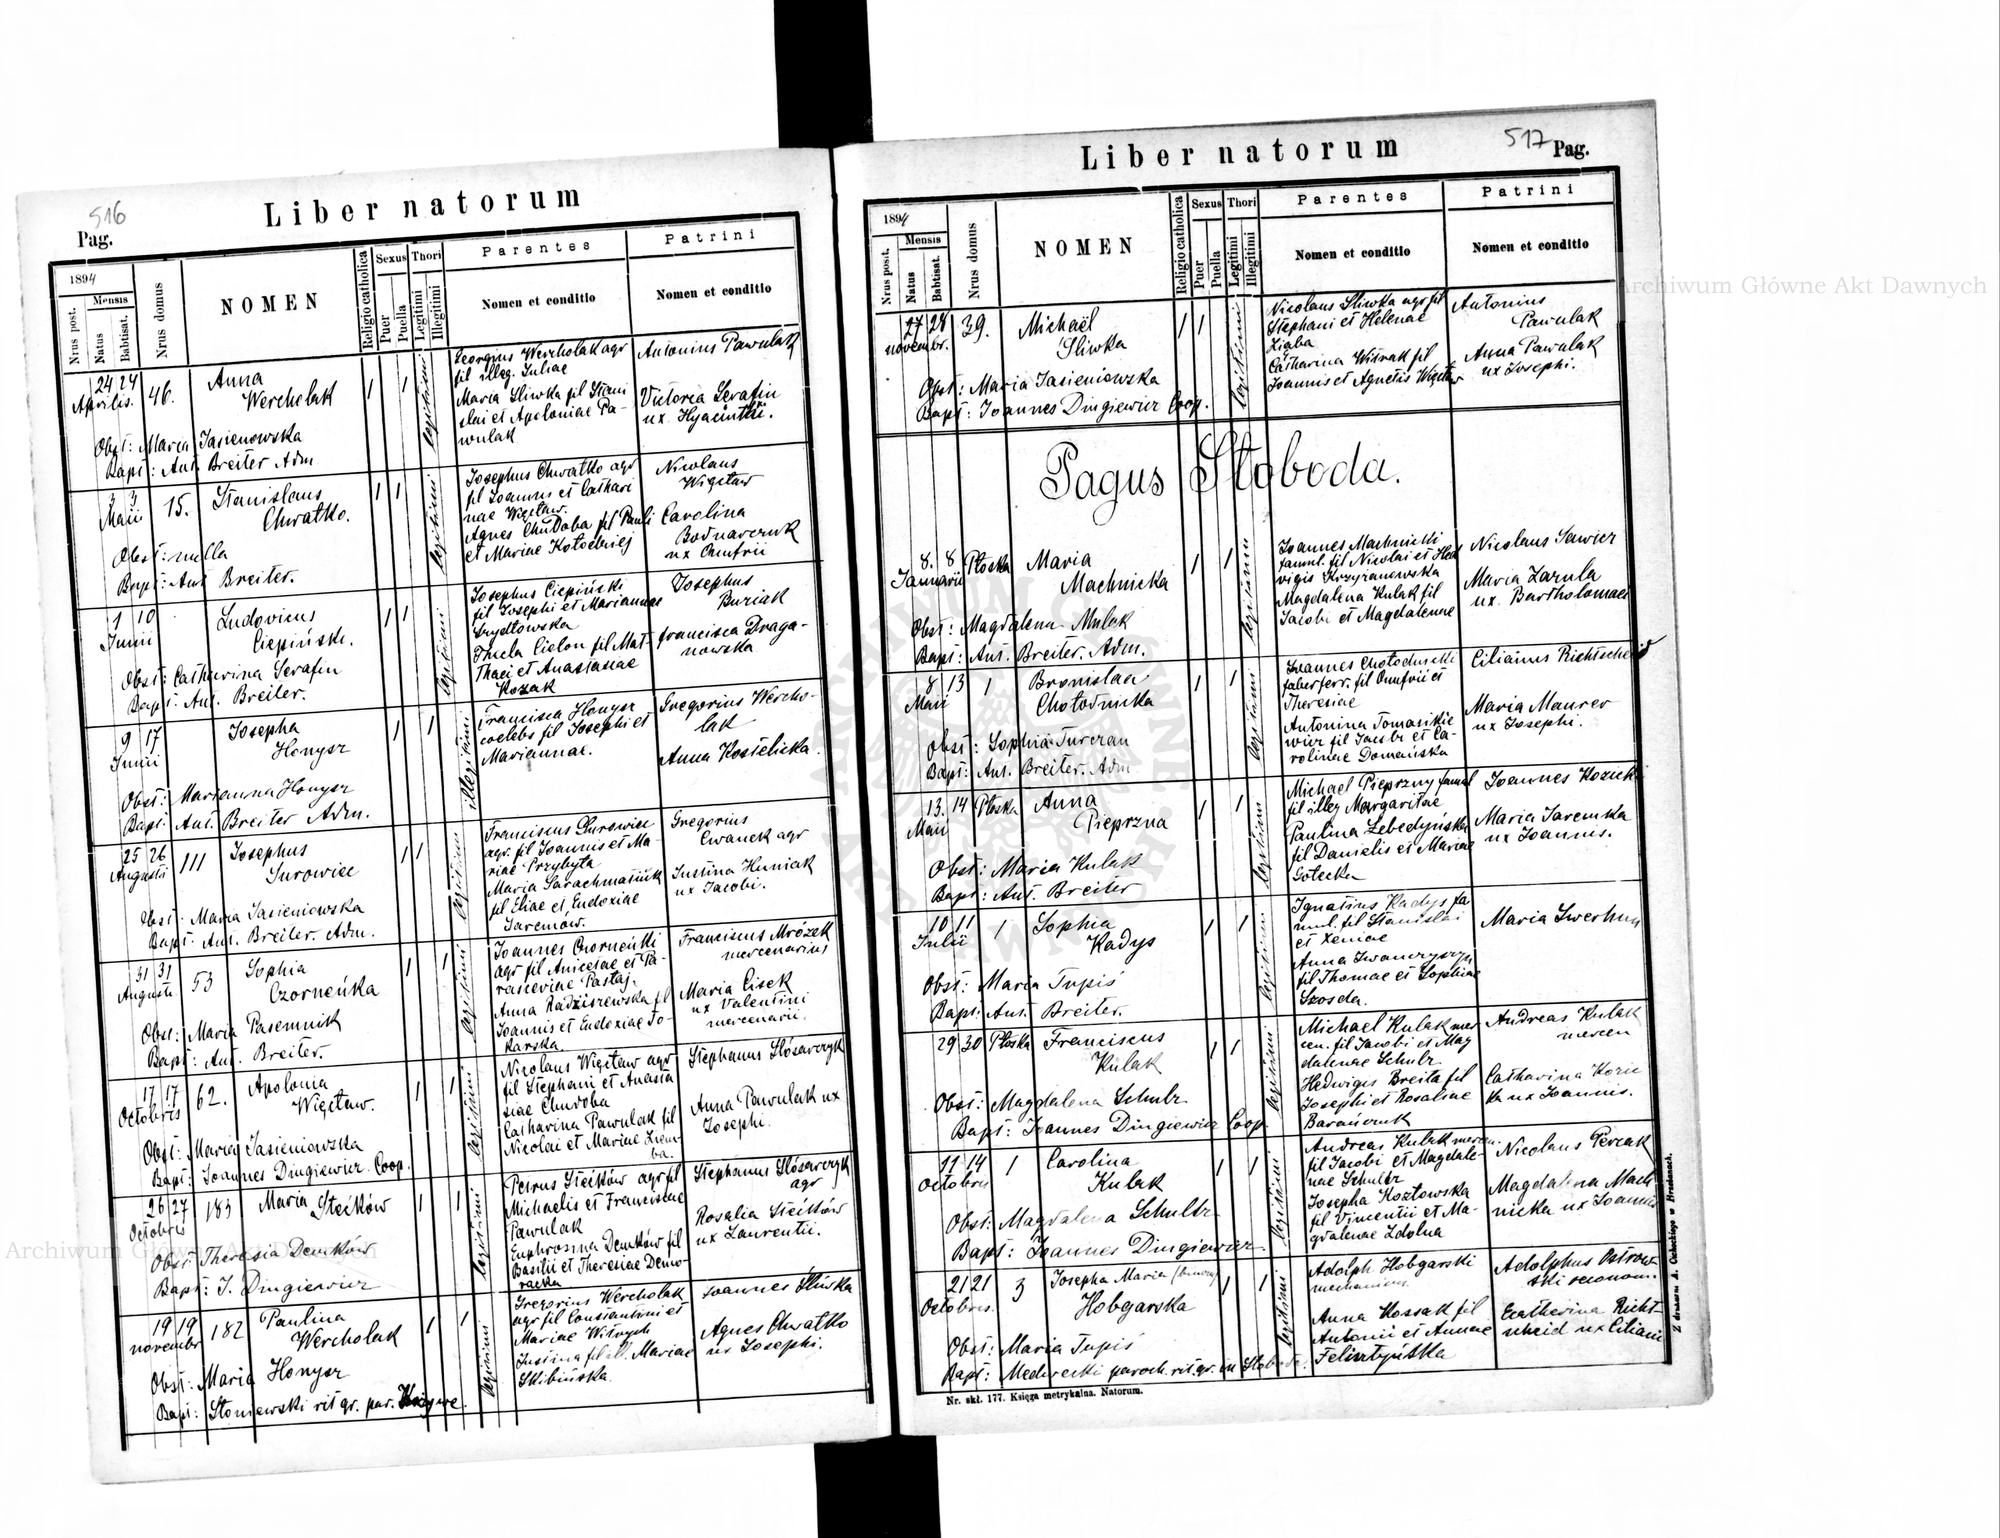 516
Liber natorum
Pag.
1894
Nrus post.
Mensis
Natus
Babtisat.
Nrus domus
NOMEN
Religio catholica
Sexus
Puer
Puella
Thori
Legitimi
Illegitimi
Parentes
Nomen et conditio
Patrini
Nomen et conditio
24 24
Aprilis.
46.
Anna
Wercholak
1 1
legitimi
Georgius Wercholak agr
fil illeg. Juliae
Maria Sliwka fil Stani
slai et Apoloniae Pa-
wulak
Antonius Pawulak
Victoria Serafin
ux. Hyacinthi.
Obst: Maria Jasienowska
Bapt: Ant. Breiter Adm
3 3
Maii
15.
Stanislaus
Chwatko.
1 1
legitimi
Josephus Chwatko agr
fil Joannis et Cathari
nae Więcław.
Agnes Chudoba fil Pauli
et Mariae Kołodziej
Nicolaus
Więcław
Carolina
Bodnarczuk
ux Onufrii
Obst: nulla
Bapt: Ant Breiter.
1 10
Junii
Ludovicus
Ciepiński.
1 1
legitimi
Josephus Ciepiński
fil Josephi et Mariannae
Thecla Cielon fil Mat-
thaei et Anastasiae
Kozak
Josephus
Buziak
Francisca Draga-
nowska
Obst: Catharina Serafin
Bapt: Ant. Breiter.
9 17
Junii
Josepha
Honysz
1 1
illegitimi
Francisca Honysz
coelebs fil Josephi et
Mariannae.
Gregorius Wercho-
lak
Anna Kostelicka.
Obst: Marianna Honysz
Bapt: Ant. Breiter Adm.
25 26
Augusti
111
Josephus
Surowiec
1 1
legitimi
Franciscus Surowiec
agr. fil Joannis et Ma-
riae Przybyła
Maria Sarachmaniuk
fil Eliae et Eudoxiae
Jaremów.
Gregorius
Ewanek agr
Justina Huniak
ux Jacobi.
Obst: Maria Jasieniowska
Bapt: Ant. Breiter. Adm.
31 31
Augusti
53
Sophia
Czorneńka
1 1
legitimi
Joannes Czorneńki
agr fil Aniceiae et Pa-
rasceviae Pastaj.
Anna Radziszewska fil
Joannis et Eudoxiae To-
karska.
Franciscus Mrózek
mercenarius
Maria Cisek
ux Valentini
mercenarii.
Obst: Maria Pasemnik
Bapt: Ant. Breiter.
17 17
Octobris
62.
Apolonia
Więcław.
1 1
legitimi
Nicolaus Więcław agr
fil Stephani et Anasta
siae Chudoba
Catharina Pawulak fil
Nicolai et Mariae Ziem-
ba.
Stephanus Slósarczyk
Anna Pawulak ux
Josephi.
Obst: Maria Jasieniowska
Bapt: Joannes Dingiewicz Coop.
26 27
Octobris
183
Maria Stećków
1 1
legitimi
Petrus Stećków agr fil
Michaelis et Franciscae
Pawulak
Euphrosina Demków fil
Basilii et Theresiae Demo-
Stephanus Slósarczyk
agr
Rosalia Stećków
ux Laurentii.
Obst: Theresia Demków
Bapt: J. Dingiewicz
19 19
novembr
182
Paulina
Wercholak
1 1
legitimi
Gregorius Wercholak
agr fil Constantini et
Mariae
Justina fil ill. Mariae
Skibińska.
Joannes Sliwka
Agnes Chwatko
ux Josephi.
Obst: Maria Honysz
Bapt: Słoniewski rit gr. par.
517
Liber natorum
Pag.
1894
Nrus post.
Mensis
Natus
Babtisat.
Nrus domus
NOMEN
Religio catholica
Sexus
Puer
Puella
Thori
Legitimi
Illegitimi
Parentes
Nomen et conditio
Patrini
Nomen et conditio
27 28
novembr.
39.
Michaël
Sliwka
1 1
legitimi
Nicolaus Sliwka agr fil
Stephani et Helenae
Zięba
Catharina Wiśrak fil
Joannis et Agnetis Więcław
Antonius
Pawulak
Anna Pawulak
ux Josephi.
Obst: Maria Jasieniowska
Bapt: Joannes Dingiewicz Coop.
Pagus Słoboda.
8. 8
Januarii
Płoska
Maria
Machnicka
1 1
legitimi
Joannes Machnicki
famul. fil Nicolai et Hed
vigis Krzyżanowska
Magdalena Kulak fil
Jacobi et Magdalenae
Nicolaus Sawicz
Maria Zarula
ux. Bartholomaei
Obst: Magdalena Mulak
Bapt: Ant. Breiter. Adm.
8 13
Maii
1
Bronislaa
Chołodnicka
1 1
legitimi
Joannes Chołodnicki
faber ferr. fil Onufrii et
Theresiae
Antonina Tomasikie
wicz fil Jacobi et Ca-
rolinae Domańska
Cilianus Richtscheid
Maria Maurer
ux Josephi.
Obst: Sophia Turczan
Bapt: Ant. Breiter. Adm
13. 14
Maii
Płoska
Anna
Pieprzna
1 1
legitimi
Michael Pieprzny famul
fil illeg Margaritae
Paulina Lebedyńska
fil Danielis et Mariae
Gołecka
Joannes Kozicki
Maria Jaremka
ux Joannis.
Obst: Maria Kulak
Bapt: Ant. Breiter
10 11
Julii
1
Sophia
Kadys
1 1
legitimi
Ignatius Kadys fa
mul. fil Stanislai
et Xeniae
Anna Iwanczyszyn
fil Thomae et Sophiae
Szosda.
Maria Zwerhun
Obst: Maria Tupiś
Bapt: Ant. Breiter.
29 30
Płoska
Franciscus
Kulak
1 1
legitimi
Michael Kulak mer
cen. fil Jacobi et Mag
dalenae Schulz
Hedwigis Breita fil
Josephi et Rosaliae
Barańczuk
Andreas Kulak
mercen
Catharina Kozic
ka ux Joannis.
Obst: Magdalena Schulz
Bapt: Joannes Dingiewicz Coop.
11 14
Octobris
1
Carolina
Kulak
1 1
legitimi
Andreas Kulak mercen.
fil Jacobi et Magdale-
nae Schultz
Josepha Kozłowska
fil Vincentii et Ma-
gdalenae Zdolna
Nicolaus Percak
Magdalena Mach
nicka ux Joannis
Obst: Magdalena Schultz
Bapt: Joannes Dingiewicz
21 21
Octobris.
3
Josepha Maria
Hobgarska
1 1
legitimi
Adolph Hobgarski
mechanicus
Anna Kossak fil
Antonii et Annae
Felisztyńska
Adolphus Ostrow
ski oeconom.
Catherina Richt-
scheid ux Ciliani
Obst: Maria Tupiś
Bapt: Medwecki paroch. rit. gr. in Słoboda.
Nr. skł. 177. Księga metrykalna. Natorum.
Z drukarni A. Cichockiego w Brzeżanach.
Archiwum Główne Akt Dawnych
Archiwum Główne Akt Dawnych
ARCHIWUM GŁÓWNE AKT DAWNYCH